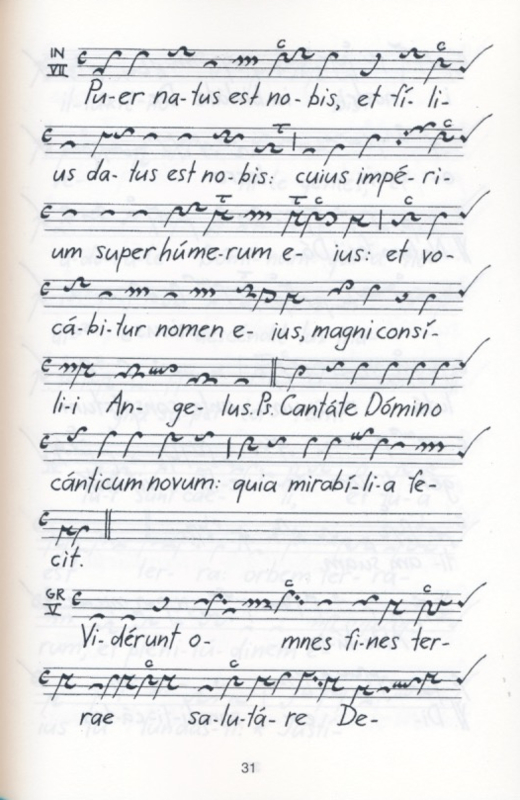 IN VII
Pu-er na-tus est no-bis, et fí-li-
us da-tus est no-bis: cuius impé-ri-
um super húme-rum e-ius: et vo-
cá-bi-tur nomen e-ius, magni consí-
li-i An-ge-lus. Ps. Cantáte Dómino
cánticum novum: quia mirabí-li-a fe-
cit.
GR V
Vi-dérunt o-mnes fi-nes ter-
rae sa-lu-tá-re De-
31